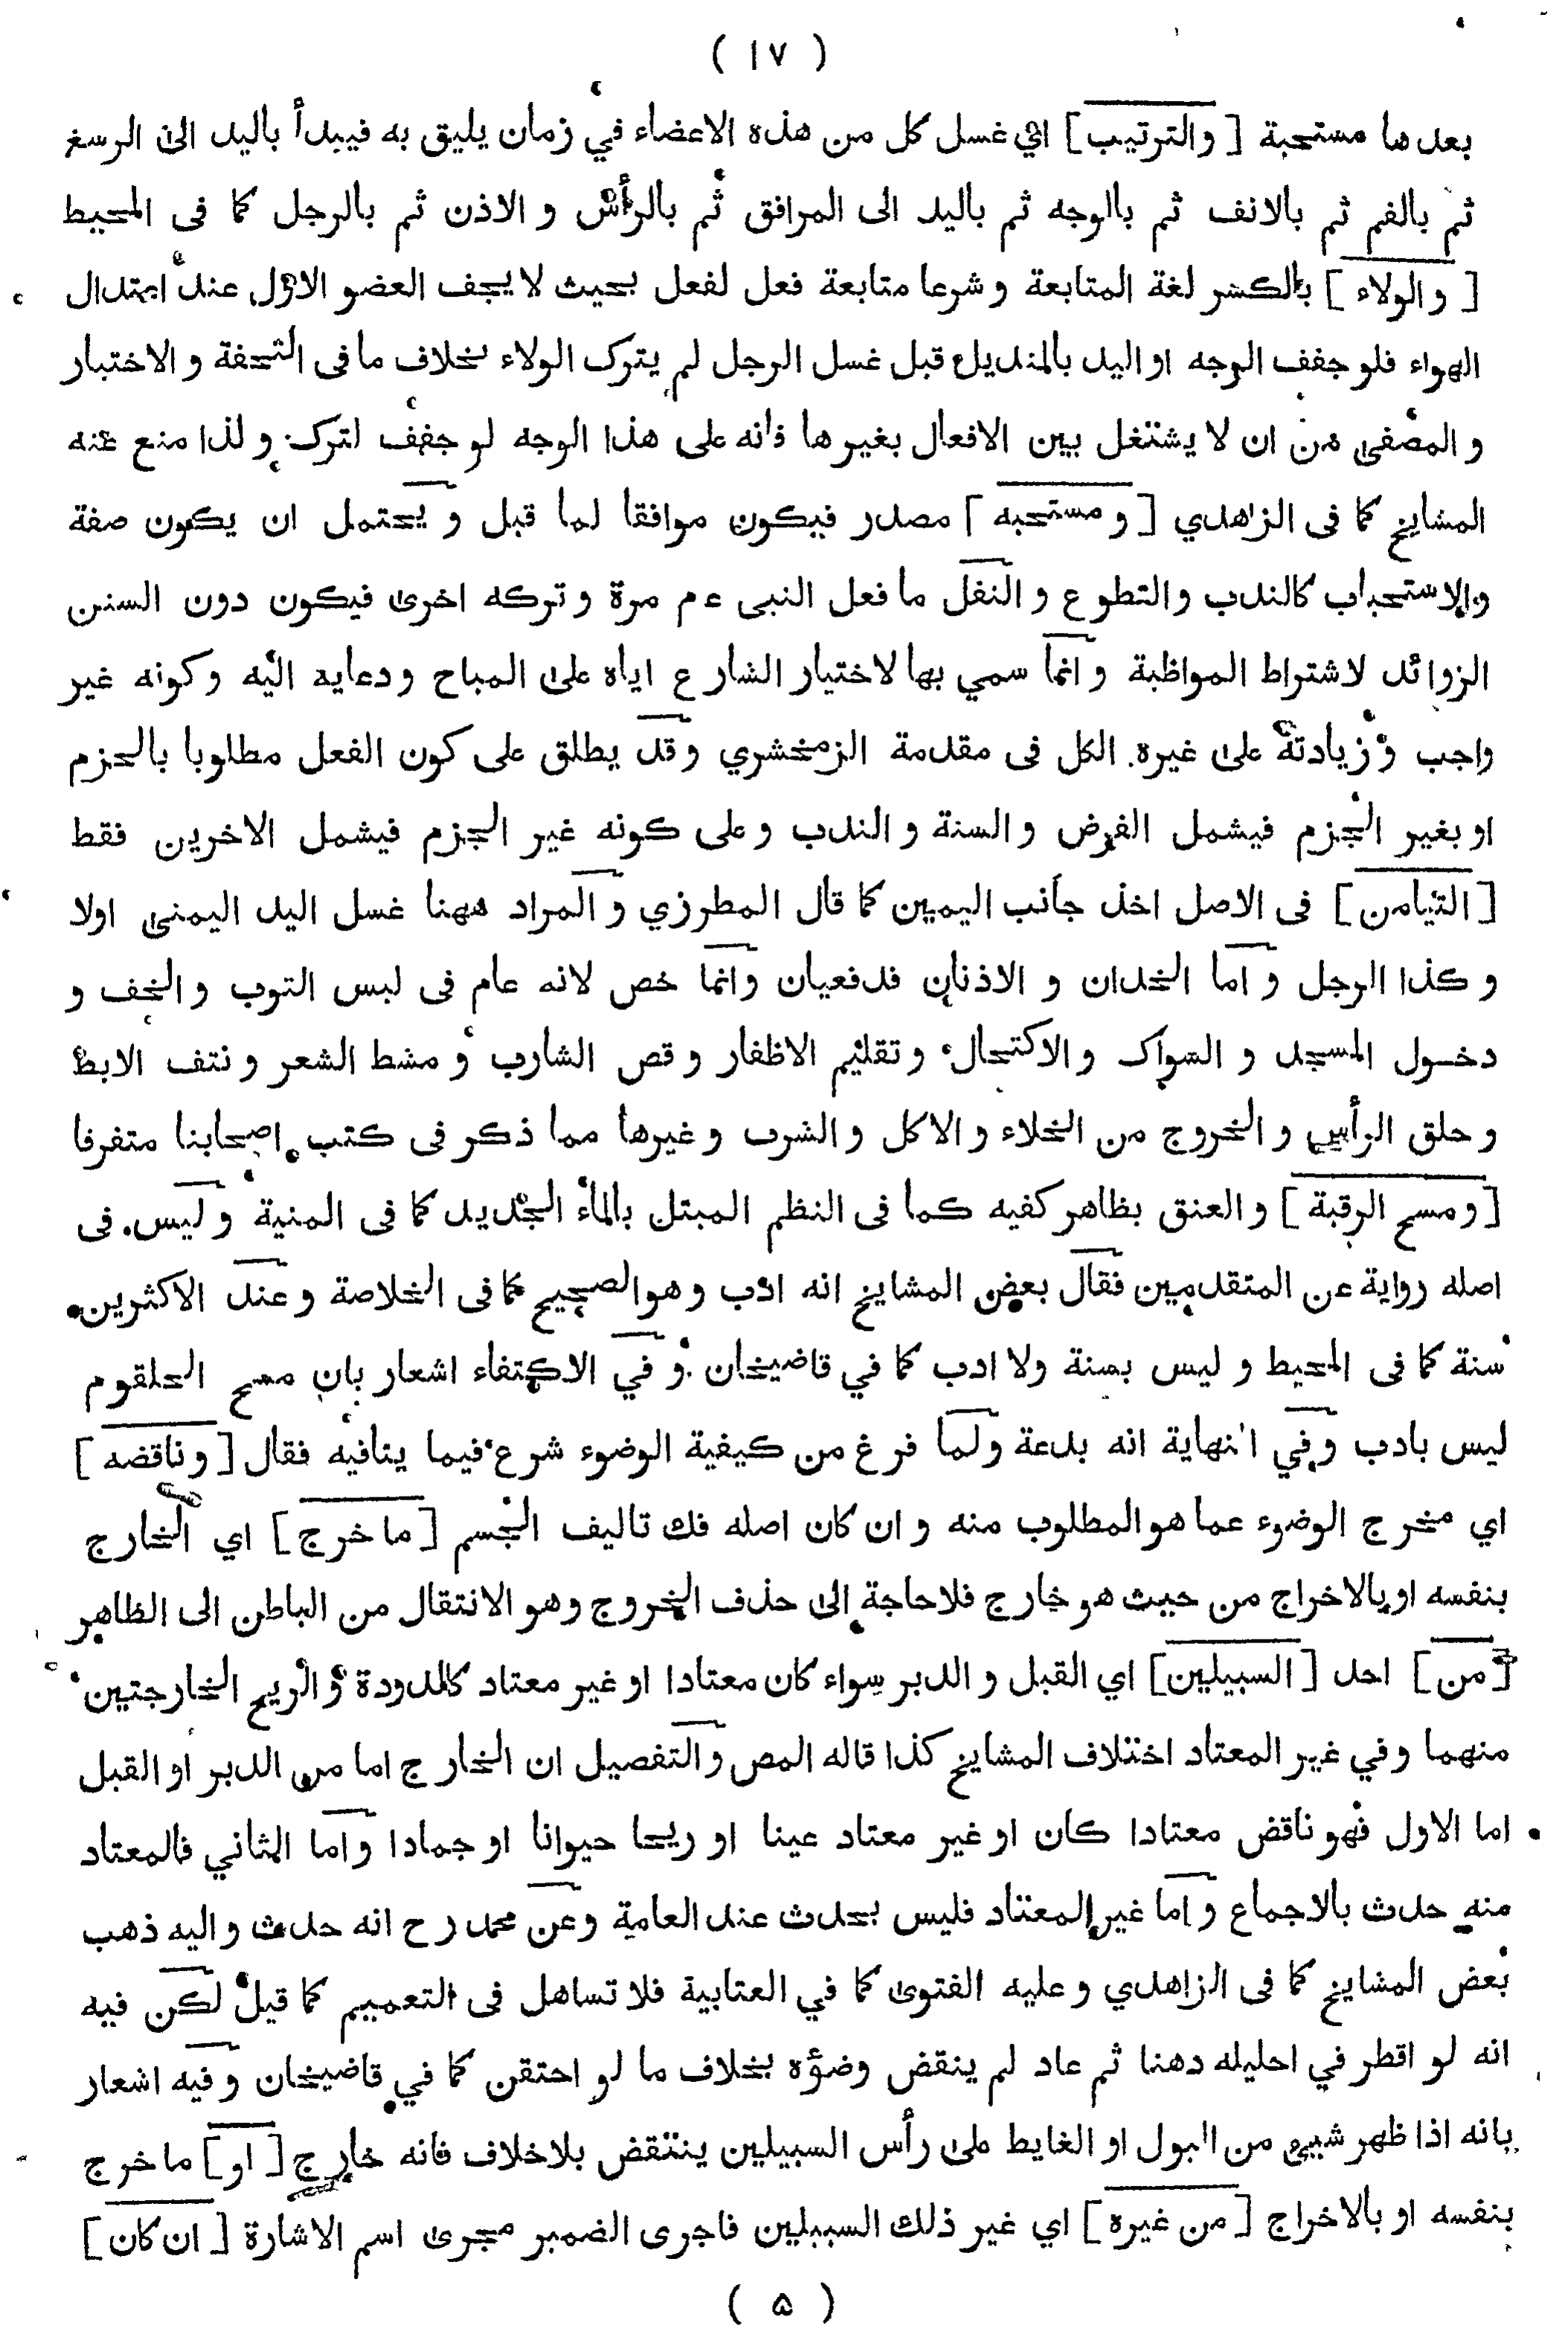 ( ١٧ )
بعدها مستحبة [ والترتيب ] اي غسل كل من هذه الاعضاء في زمان يليق به فيبدأ باليد الى الرسغ
ثم بالفم ثم بالانف ثم بالوجه ثم باليد الى المرافق ثم بالرأس و الاذن ثم بالرجل كما فى المحيط
[ والولاء ] بالكسر لغة المتابعة و شرعا متابعة فعل لفعل بحيث لا يجف العضو الاول عند اعتدال
الهواء فلو جفف الوجه او اليد بالمنديل قبل غسل الرجل لم يترك الولاء بخلاف ما فى التحفة و الاختيار
و المصفى من ان لا يشتغل بين الافعال بغيرها فانه على هذا الوجه لو جفف لترك و لذا منع عنه
المشايخ كما فى الزاهدي [ و مستحبه ] مصدر فيكون موافقا لما قبل و يحتمل ان يكون صفة
والاستحباب كالندب والتطوع و النفل ما فعل النبى عم مرة و تركه اخرى فيكون دون السنن
الزوائد لاشتراط المواظبة و انما سمي بها لاختيار الشارع اياه على المباح و دعايه اليه و كونه غير
واجب و زيادته على غيره الكل فى مقدمة الزمخشري و قد يطلق على كون الفعل مطلوبا بالجزم
او بغير الجزم فيشمل الفرض و السنة و الندب و على كونه غير الجزم فيشمل الاخرين فقط
[ التيامن ] فى الاصل اخذ جانب اليمين كما قال المطرزي و المراد ههنا غسل اليد اليمنى اولا
و كذا الرجل و اما الخدان و الاذنان فدفعيان وانما خص لانه عام فى لبس الثوب و الخف و
دخول المسجد و السواك و الاكتحال و تقليم الاظفار و قص الشارب و مشط الشعر و نتف الابط
و حلق الرأس و الخروج من الخلاء و الاكل و الشرب و غيرها مما ذكر فى كتب اصحابنا متفرقا
[ و مسح الرقبة ] و العنق بظاهر كفيه كما فى النظم المبتل بالماء الجديد كما فى المنية و ليس فى
اصله رواية عن المتقدمين فقال بعض المشايخ انه ادب و هو الصحيح كما فى الخلاصة و عند الاكثرين
سنة كما فى المحيط و ليس بسنة ولا ادب كما في قاضيخان و في الاكتفاء اشعار بان مسح الحلقوم
ليس بادب وفي النهاية انه بدعة ولما فرغ من كيفية الوضوء شرع فيما ينافيه فقال [ و ناقضه ]
اي مخرج الوضوء عما هو المطلوب منه و ان كان اصله فك تاليف الجسم [ ما خرج ] اي الخارج
بنفسه او بالاخراج من حيث هو خارج فلا حاجة الى حذف الخروج وهو الانتقال من الباطن الى الظاهر
[ من ] احد [ السبيلين ] اي القبل و الدبر سواء كان معتادا او غير معتاد كالدودة و الريح الخارجتين
منهما وفي غير المعتاد اختلاف المشايخ كذا قاله المص و التفصيل ان الخارج اما من الدبر او القبل
اما الاول فهو ناقض معتادا كان او غير معتاد عينا او ريحا حيوانا او جمادا و اما الثاني فالمعتاد
منه حدث بالاجماع و اما غير المعتاد فليس بحدث عند العامة وعن محمد رح انه حدث و اليه ذهب
بعض المشايخ كما فى الزاهدي و عليه الفتوى كما في العتابية فلا تساهل فى التعميم كما قيل لكن فيه
انه لو اقطر في احليله دهنا ثم عاد لم ينقض وضؤه بخلاف ما لو احتقن كما في قاضيخان و فيه اشعار
بانه اذا ظهر شيئ من البول او الغايط على رأس السبيلين ينتقض بلاخلاف فانه خارج [ او ] ما خرج
بنفسه او بالاخراج [ من غيره ] اي غير ذلك السبيلين فاجرى الضمير مجرى اسم الاشارة [ ان كان ]
( ٥ )